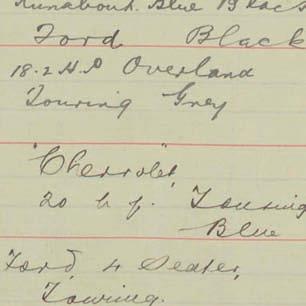 Runabout. Blue
Ford Black
18.2 H.P Overland
Touring Grey
"Chevrolet"
20 h.p. Touring
Blue
Ford 4 Seater,
Touring.